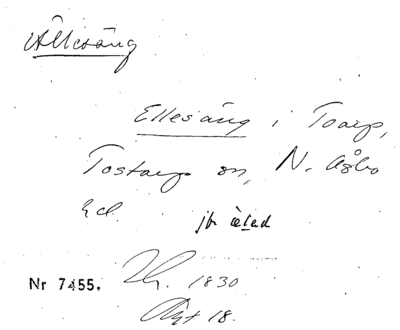 Ällesäng
Ellesäng i Toarp,
Tostarp sn, N. Åsbo
hd. jfr èlad
Nr 7455. 1830
Akt 18.